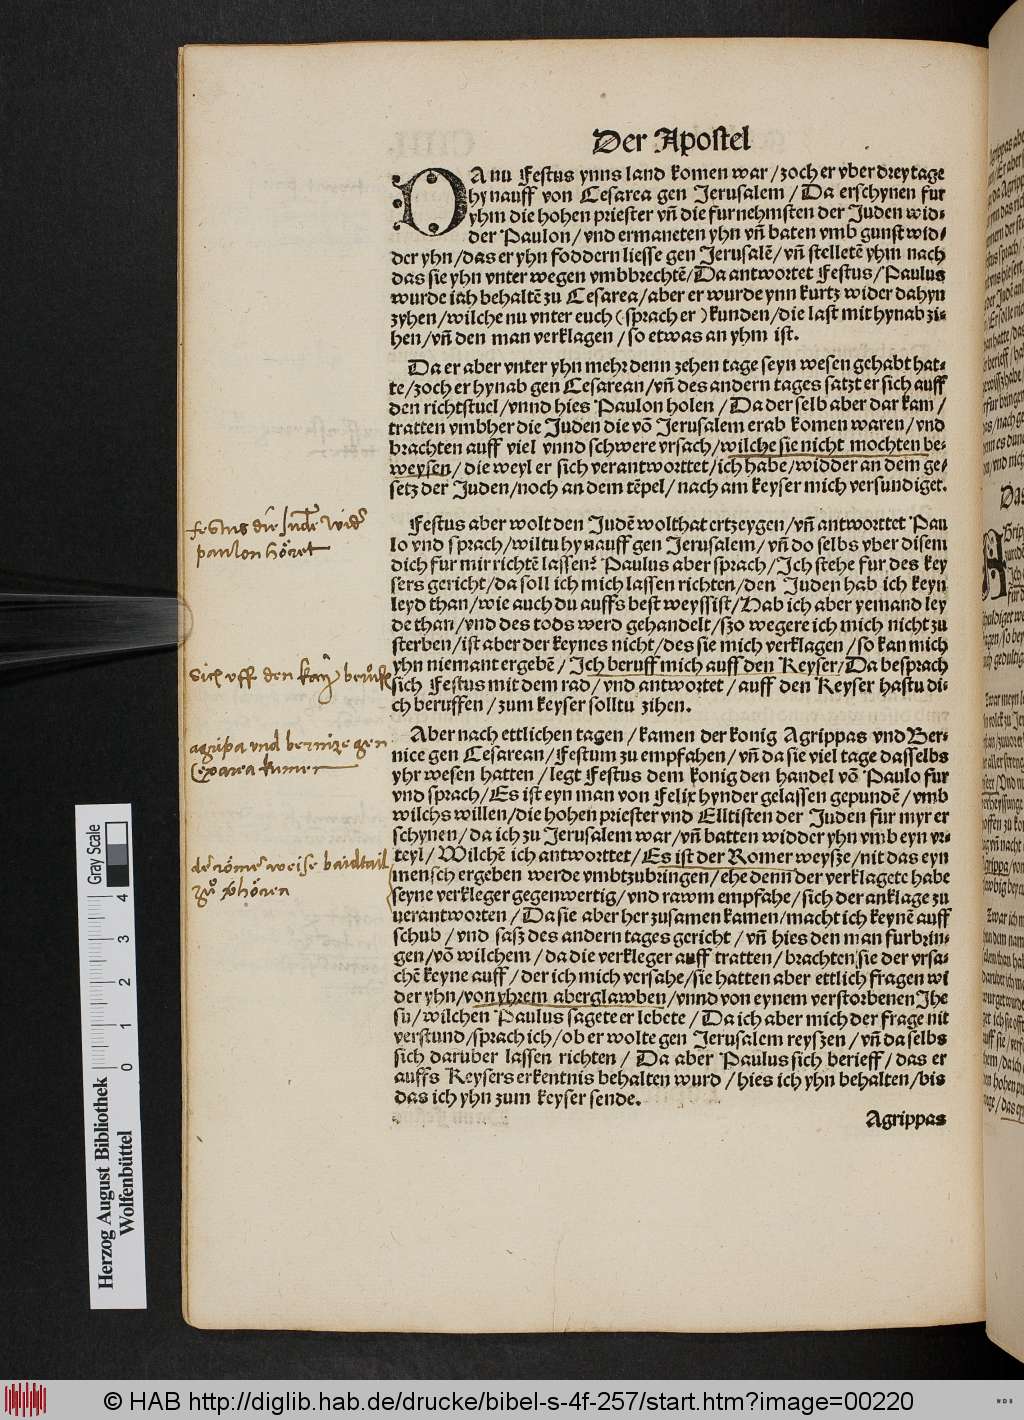 Der Apostel
DA nu Festus ynns land komen war / zoch er vber drey tage
hynauff von Cesarea gen Jerusalem / Da erschynen fur
yhm die hohen priester vñ die furnehmsten der Juden wid-
der Paulon / vnd ermaneten yhn vñ baten vmb gunst wid-
der yhn / das er yhn foddern liesse gen Jerusalē / vñ stelletē yhm nach
das sie yhn vnter wegen vmbbrechtē / Da antwortet Festus / Paulus
wurde iah behaltē zu Cesarea / aber er wurde ynn kurtz wider dahyn
zyhen / wilche nu vnter euch ( sprach er ) kunden / die last mit hynab zi-
hen / vñ den man verklagen / so etwas an yhm ist.
Da er aber vnter yhn mehr denn zehen tage seyn wesen gehabt hat-
te / zoch er hynab gen Cesarean / vñ des andern tages satzt er sich auff
den richtstuel / vnnd hies Paulon holen / Da der selb aber dar kam /
tratten vmbher die Juden die vō Jerusalem erab komen waren / vnd
brachten auff viel vnnd schwere vrsach / wilche sie nicht mochten be-
weysen / die weyl er sich verantworttet / ich habe / widder an dem ge-
setz der Juden / noch an dem tēpel / nach am keyser mich versundiget.
Festus aber wolt den Judē wolthat ertzeygen / vñ antworttet Pau
lo vnd sprach / wiltu hynauff gen Jerusalem / vñ do selbs vber disem
dich fur mir richtē lassen? Paulus aber sprach / Ich stehe fur des key
sers gericht / da soll ich mich lassen richten / den Juden hab ich keyn
leyd than / wie auch du auffs best weyssist / Hab ich aber yemand ley
de than / vnd des tods werd gehandelt / szo wegere ich mich nicht zu
sterben / ist aber der keynes nicht / des sie mich verklagen / so kan mich
yhn niemant ergebē / Ich beruff mich auff den Keyser / Da besprach
sich Festus mit dem rad / vnd antwortet / auff den Keyser hastu di-
ch beruffen / zum keyser solltu zihen.
Aber nach ettlichen tagen / kamen der konig Agrippas vnd Ber-
nice gen Cesarean / Festum zu empfahen / vñ da sie viel tage dasselbs
yhr wesen hatten / legt Festus dem konig den handel vō Paulo fur
vnd sprach / Es ist eyn man von Felix hynder gelassen gepundē / vmb
wilchs willen / die hohen priester vnd Elltisten der Juden fur myr er
schynen / da ich zu Jerusalem war / vñ batten widder yhn vmb eyn vr-
teyl / Wilchē ich antworttet / Es ist der Romer weysze / nit das eyn
mensch ergeben werde vmbtzubringen / ehe denn der verklagete habe
seyne verkleger gegenwertig / vnd rawm empfahe / sich der anklage zu
uerantworten / Da sie aber her zusamen kamen / macht ich keynē auff
schub / vnd sasz des andern tages gericht / vñ hies den man furbrin-
gen / vō wilchem / da die verkleger auff tratten / brachten sie der vrsa-
chē keyne auff / der ich mich versahe / sie hatten aber ettlich fragen wi
der yhn / von yhrem aberglawben / vnnd von eynem verstorbenen Jhe
su / wilchen Paulus sagete er lebete / Da ich aber mich der frage nit
verstund / sprach ich / ob er wolte gen Jerusalem reyszen / vñ da selbs
sich daruber lassen richten / Da aber Paulus sich berieff / das er
auffs Keysers erkentnis behalten wurd / hies ich yhn behalten / bis
das ich yhn zum keyser sende.
Agrippas
festus die Judē wider
paulon höret
sich vff den kayser berüfft
agripa vnd bernize gen
Cesarea kumen
der römer weise baidtail
zu verhören
Gray Scale
0 1 2 3 4
Herzog August Bibliothek
Wolfenbüttel
© HAB http://diglib.hab.de/drucke/bibel-s-4f-257/start.htm?image=00220